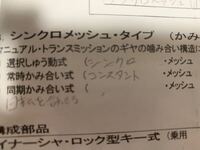 シンクロメッシュ・タイプ (かみ
マニュアル・トランスミッションのギヤの噛み合い構造に
選択しゅう動式 (シンクロ ・メッシュ
常時かみ合い式 (コンスタント ・メッシュ
同期かみ合い式 ( ・メッシュ
構成部品
イナーシャ・ロック型キー式 (乗用